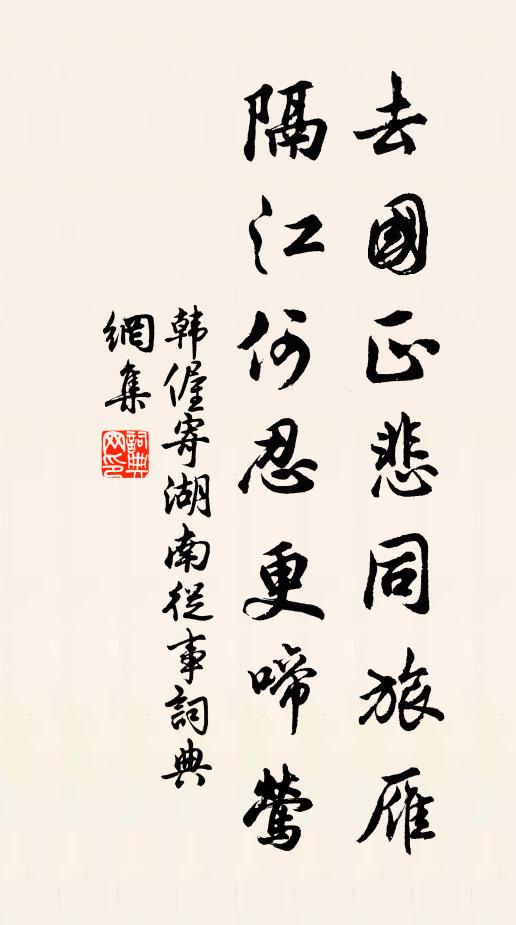 去國正悲同旅雁
隔江何忍更啼鶯
韓偓寄湖南從事詞典
網集
詞典網印